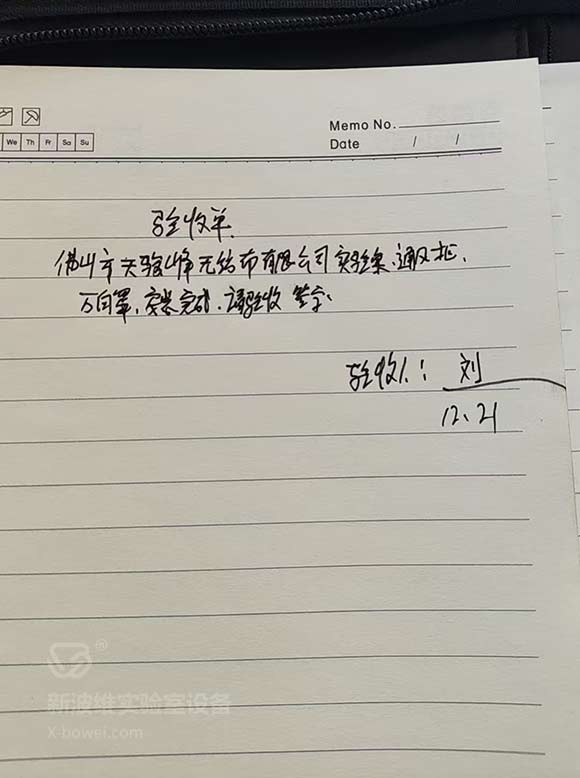 Memo No.
Date / /
We Th Fr Sa Su
验收单
佛山市天骏峰无纺布有限公司实验桌、通风柜、
万向罩,安装完成,请验收签字.
验收人: 刘
12、21
新波维实验室设备
X-bowei.com